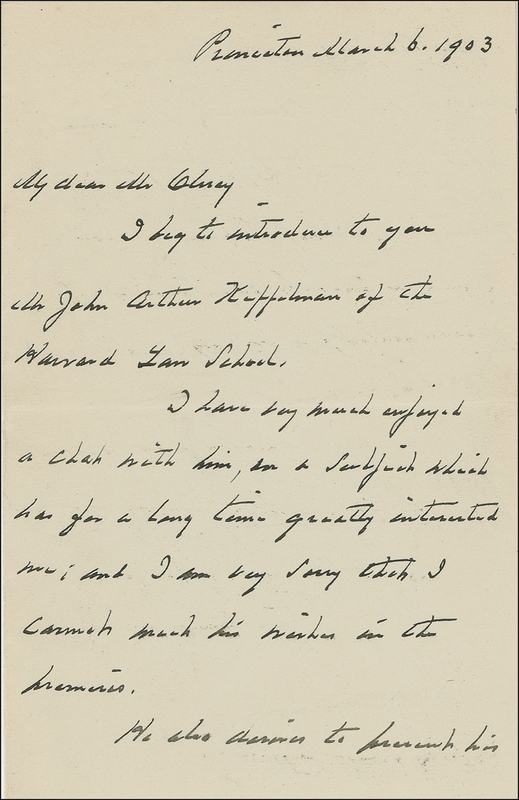 Princeton March 6. 1903
My dear Mr Olney
I beg to introduce to you
Mr John Arthur Keppelman of the
Harvard Law School.
I have very much enjoyed
a chat with him, on a subject which
has for a long time greatly interested
me; and I am very sorry that I
cannot meet his wishes in the
premises.
He also desires to present his